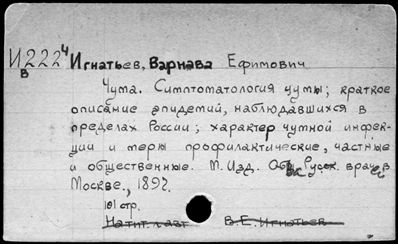 И222 4 Игнатьев, Варнава Ефимович
в
Чума. Симптоматология чумы; краткое
описание эпидемий, наблюдавшихся в
пределах России; характер чумной инфек-
ции и меры профилактические, частные
и общественные. М. Изд. Общ. Русск. врачей в
Москве., 1897.
101 стр.
В.Е. Игнатьев